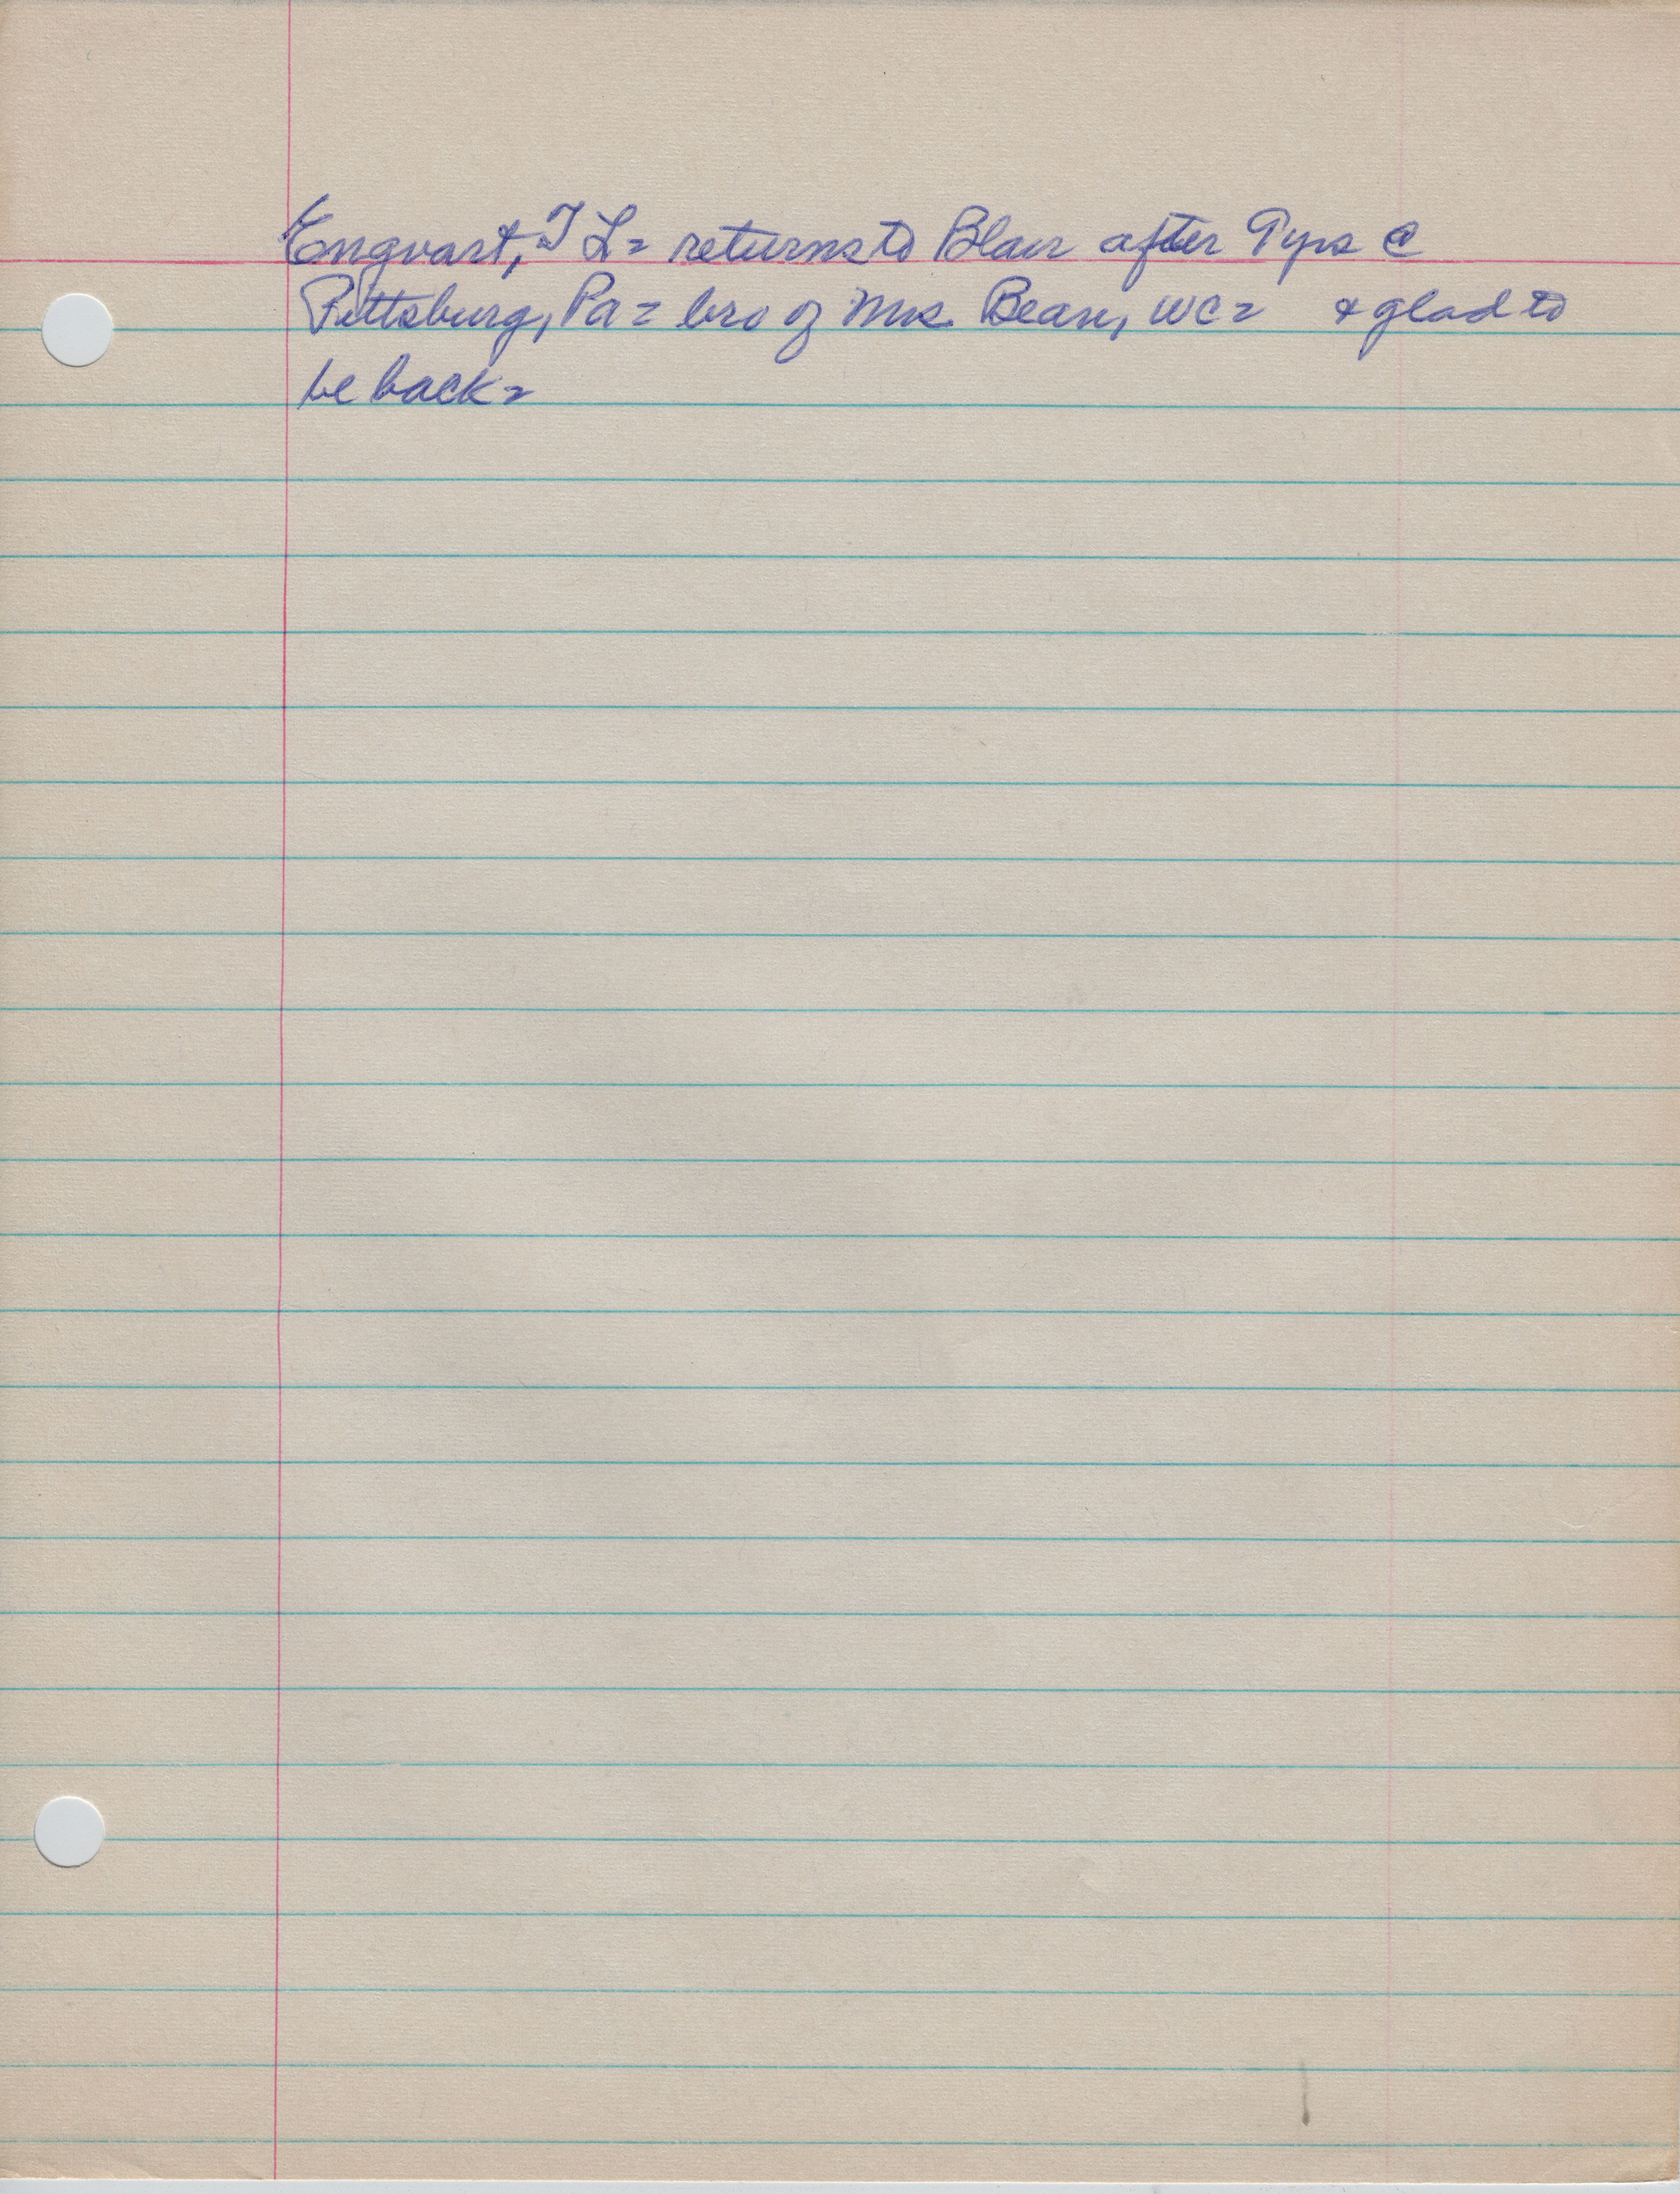 Engvart, T L = returns to Blair after 9 yrs @
Pittsburg, Pa = bro of Mrs. Bean, WC = & glad to
be back =